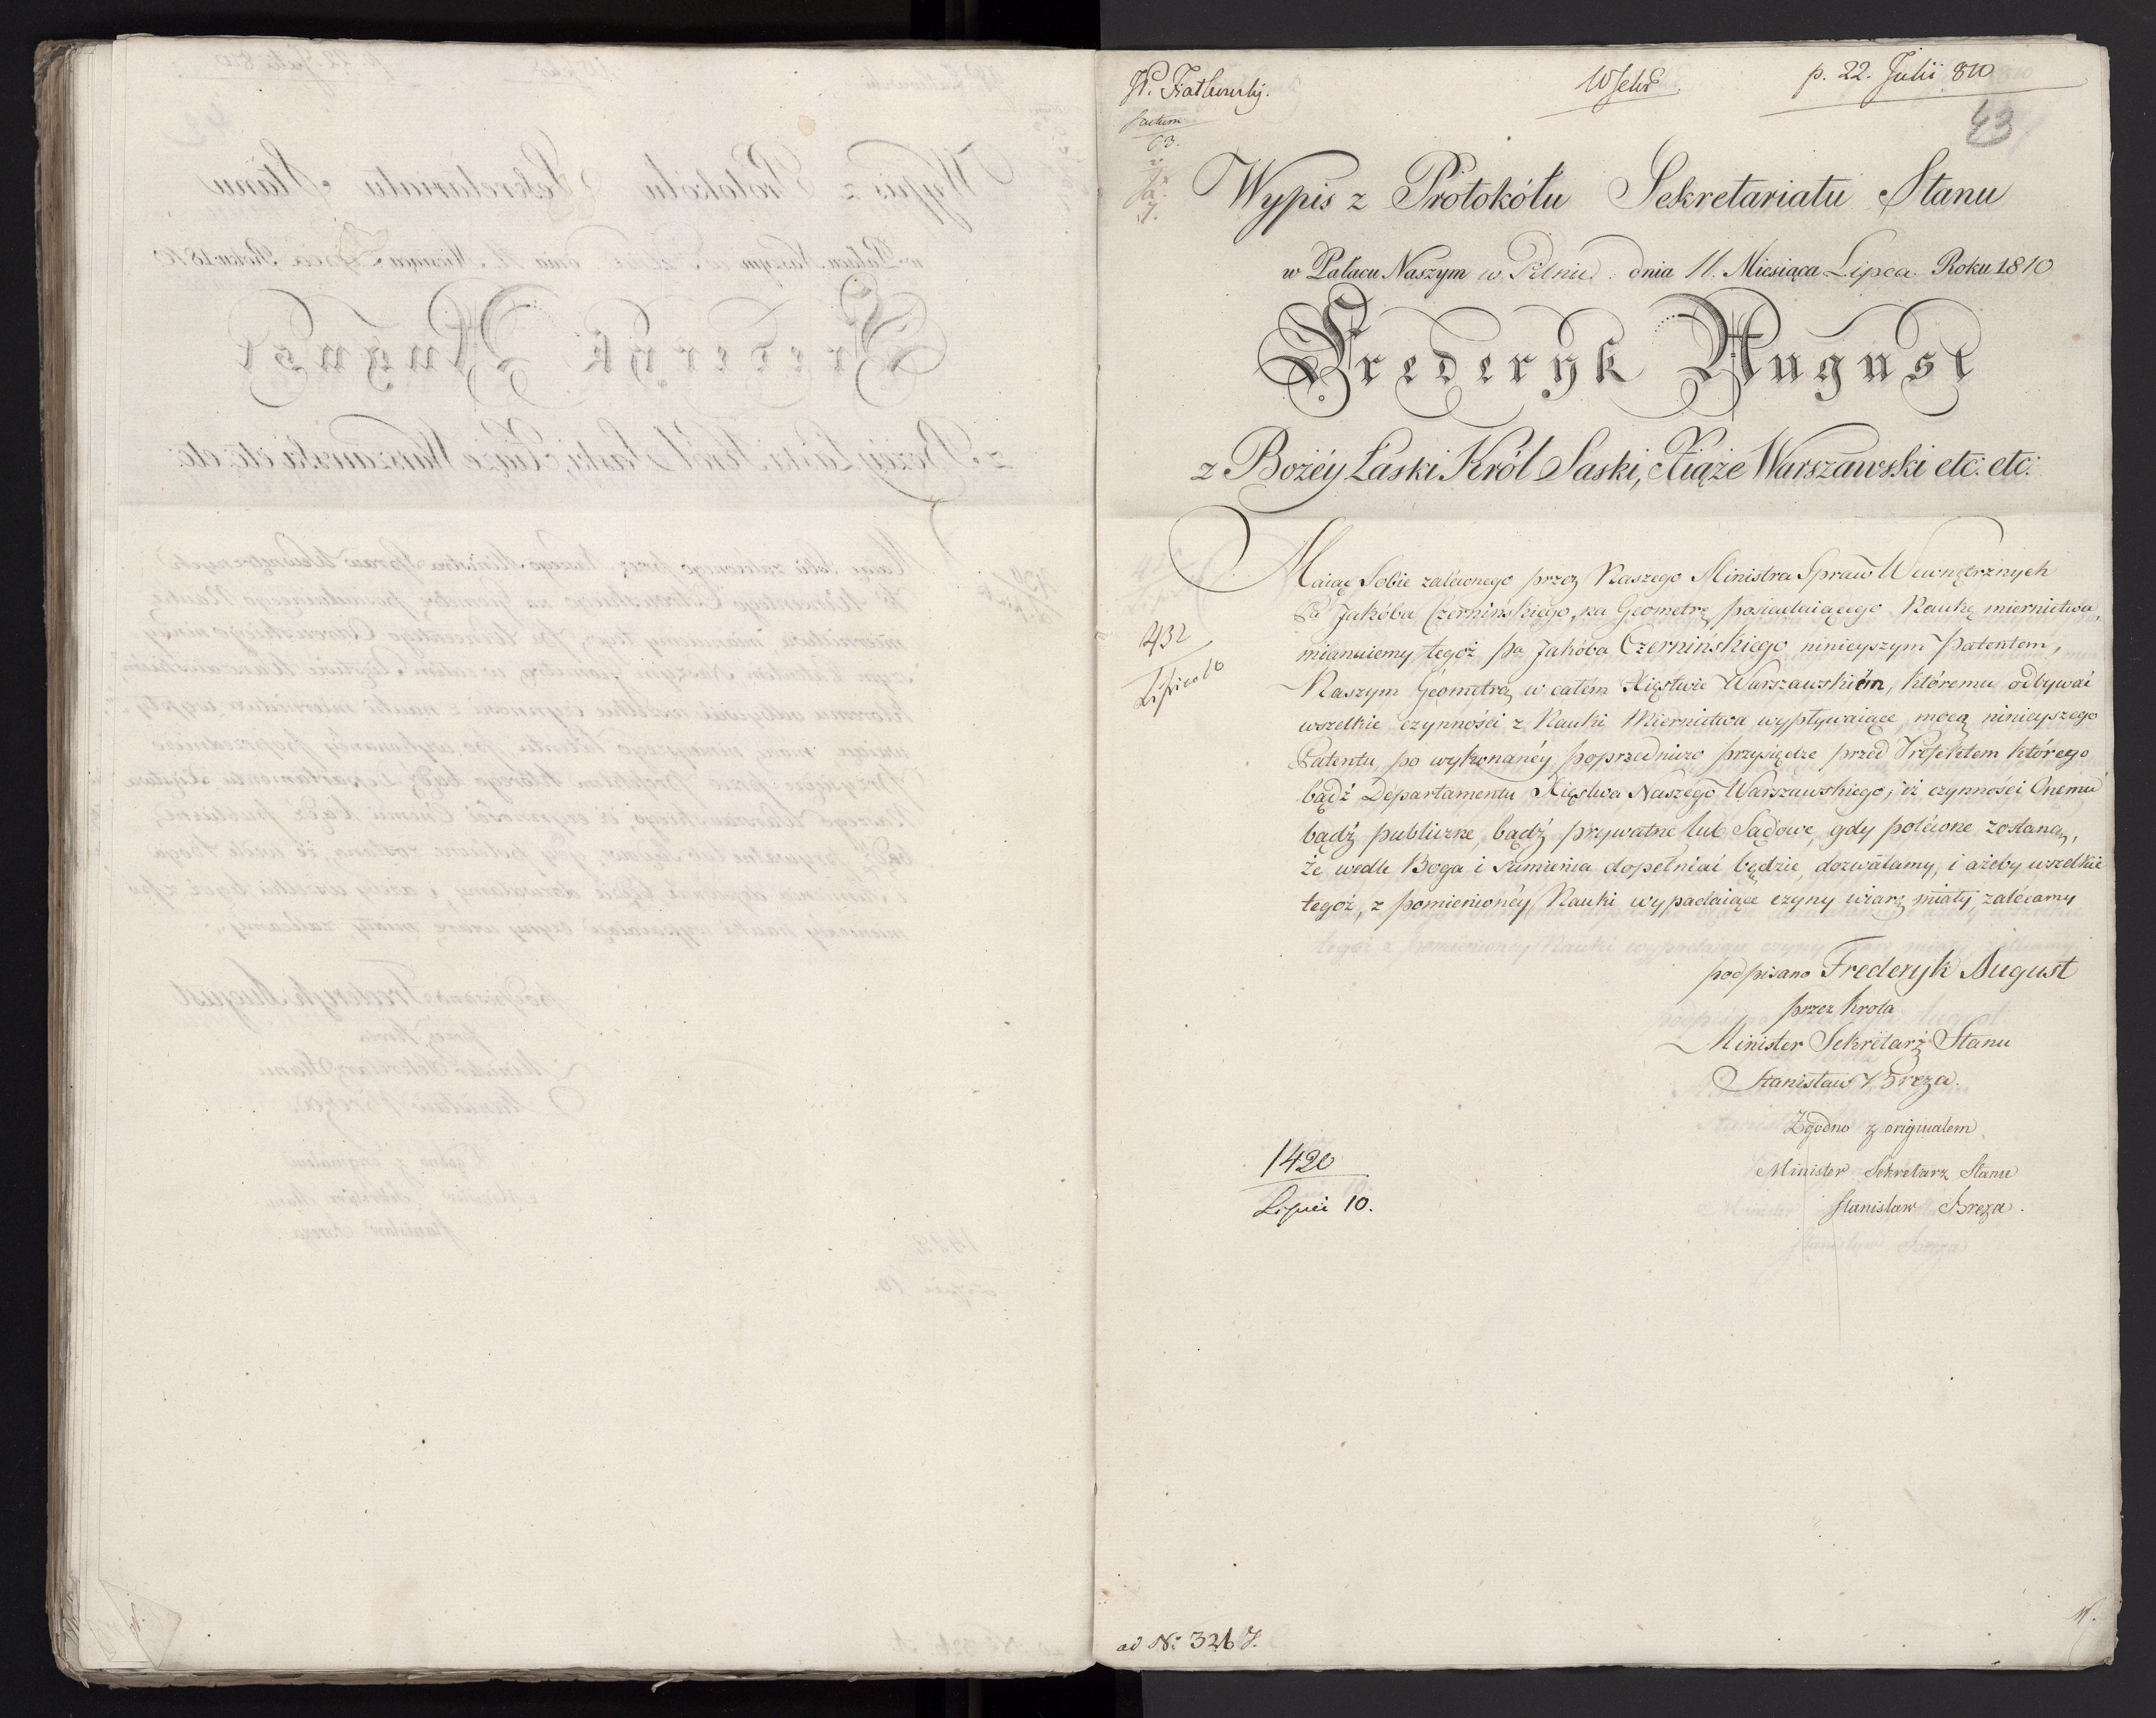 p. 22. Julii 810
43
Wypis z Protokółu Sekretariatu Stanu
w Pałacu Naszym w Pilnic dnia 11. Miesiąca Lipca Roku 1810
Frederyk August
z Bożéy Łaski Król Saski, Xiąże Warszawski etc: etc:
Maiąc Sobie zaleconego przez Naszego Ministra Spraw Wewnętrznych
Pa Jakóba Czernińskiego, na Geometrę posiadaiącego Naukę miernictwa,
432
Lipca 10
mianuiemy tegoż Pa Jakóba Czernińskiego ninieyszym Patentem,
Naszym Geometrą w całém Xięstwie Warszawskiém, któremu odbywać
wszelkie czynności z Nauki Miernictwa wypływaiące, mocą ninieyszego
Patentu, po wykonanéy poprzedniczo przysiędze przed Prefektem którego
bądź Departamentu Xięstwa Naszego Warszawskiego, iż czynności Onemu
bądź publiczne, bądź prywatne lub Sądowe, gdy polécone zostaną,
że wedle Boga i sumienia dopełniać będzie, dozwalamy, i ażeby wszelkie
tegoż, z pomienionéy Nauki wypadaiące czyny wiarę miały zalécamy
podpisano Frederyk August
przez Krola
Minister Sekretarz Stanu
Stanisław Breza.
Zgodno z originałem
Minister Sekretarz Stanu
Stanisław Breza.
1420
Lipca 10.
ad No: 3267.